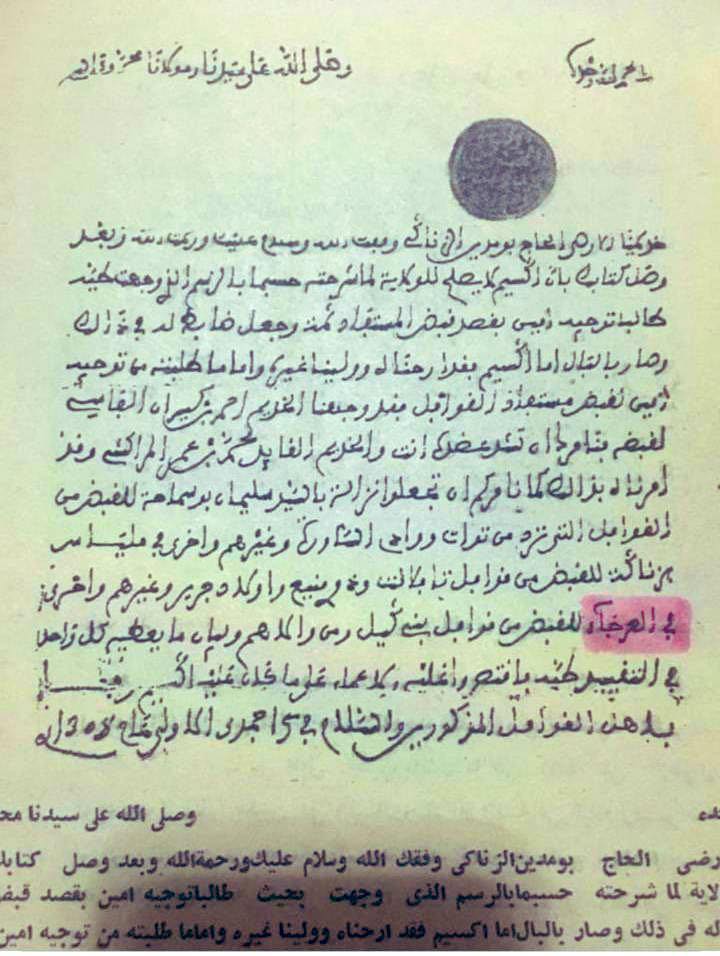 الحمد لله وحده وصلى الله على سيدنا ومولانا محمد وءاله
خديمنا الارضى الحاج بومدين الزناكي وفقك الله وسلام عليك ورحمت الله وبعد
وصل كتابك بان اكسيم لا يصلح للولاية لما شرحته حسبما بالرسم الذي وجهت طيه
طالبا توجيه امين بقصد قبض المستفاد ثمة وجعل ضابط له في ذالك
وصار بالبال اما اكسيم فقد ارحناه وولينا غيره واما ما طلبته من توجيه
امين لقبض مستفاد القوافل فقد وجهنا الخديم احمد بن كيران الفاسي
لقبضه ان تشد عضده انت والخديم القايد محمد بن عمر المراكشي وقد
امرناه بذالك كما نامركم ان تجعلوا نزالة بالسيد سليمان بوسماحة للقبض من
القوافل التي ترد من توات وواد الساورة وغيرهم واخرى في ملياس
بزناكة للقبض من قوافل تافلالت وذوي منيع واولاد جرير وغيرهم واخرى
في العرجة للقبض من قوافل بني كيل ومن والاهم وبيان ما يعطيه كل واحد
في التقييد طيه فانته واعليه ولا على ما كان عليه اكسيم
القوافل المذكورين والسلام في جمدى الاولى عام 1308
ده وصلى الله على سيدنا مح
رضى الحاج بومدين الزناكى وفقك الله وسلام عليك ورحمة الله وبعد وصل كتابك
لاية لما شرحته حسبما بالرسم الذى وجهت بحيث طالبا توجيه امين بقصد قبض
له فى ذلك وصار بالبال اما اكسيم فقد ارحناه وولينا غيره واما ما طلبته من توجيه امين